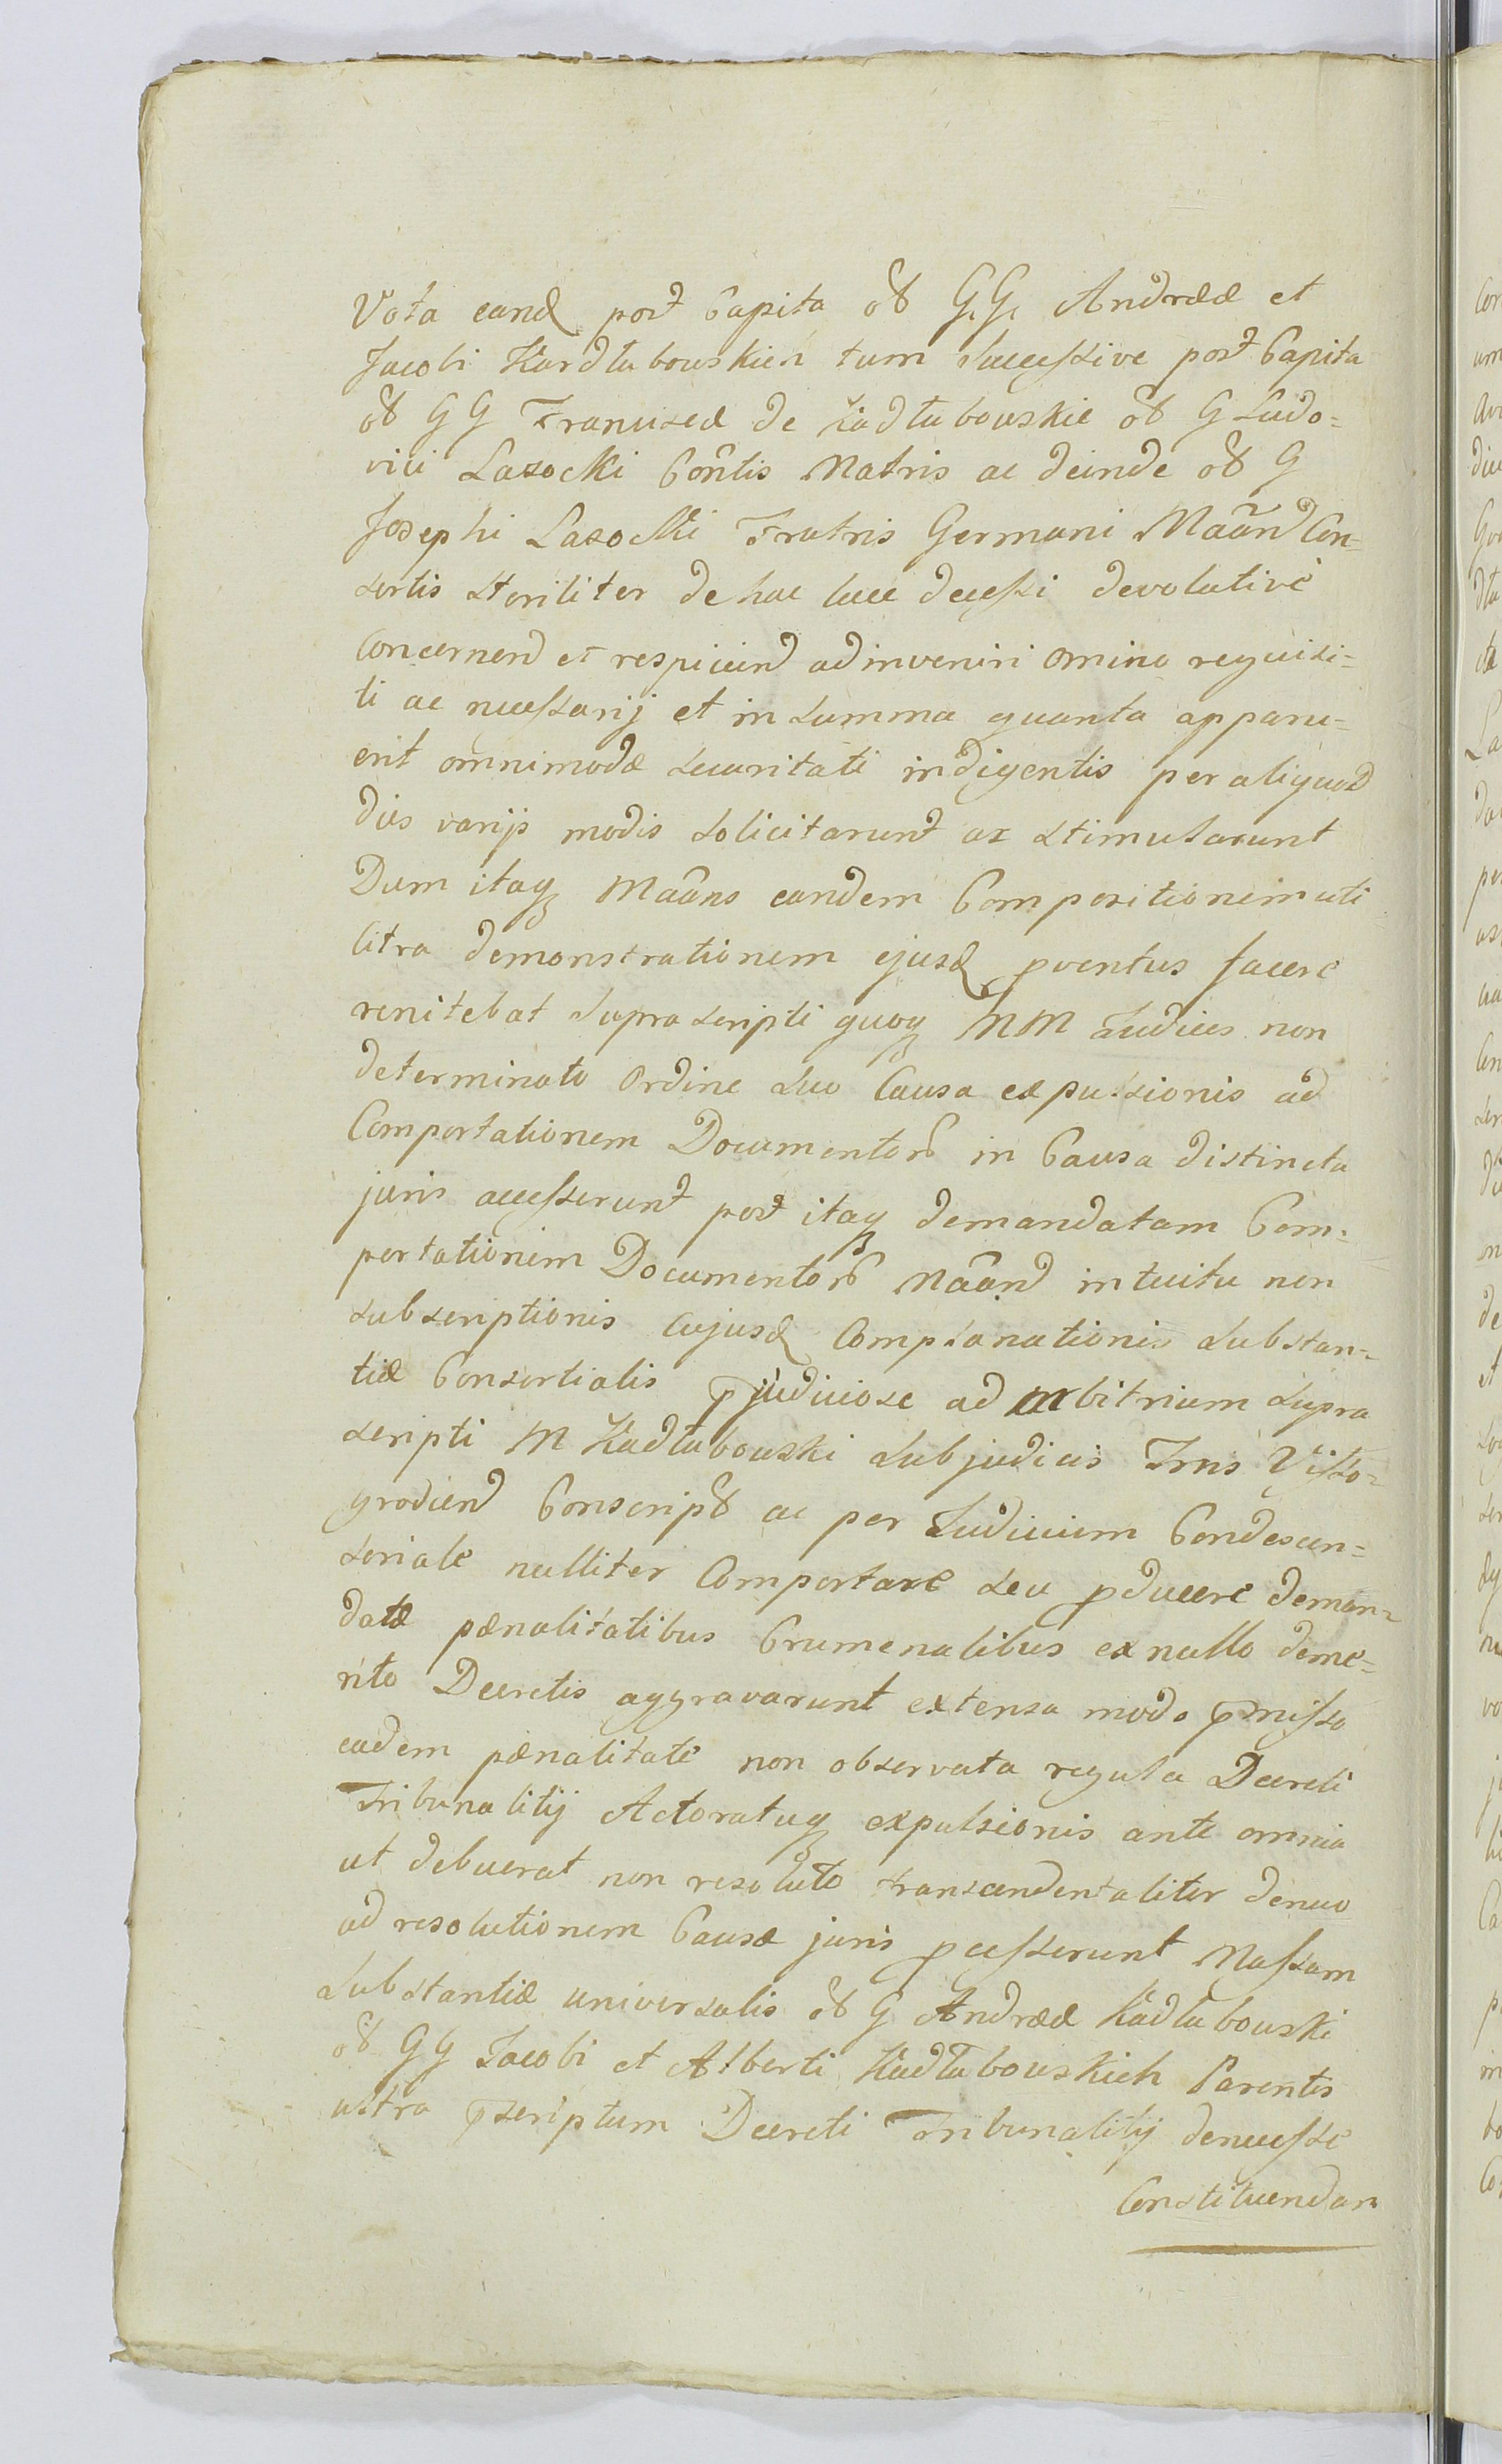 Vota eand post Capita ol GG Andreæ et
Jacobi Kardłubowskich tum Successive post Capita
ol GG Franciscæ de Kadłubowskie ol G Ludo=
vici Lasocki Cont̃is Matris ac deinde ol G
Josephi Lasocki Fratris Germani Maãnd Con=
sortis Steriliter de hac luce decessi devolutive
Concernend et respiciend adinveniri omino requisi=
ti ac necessarij et in Summa quanta apparu=
erit omnimodæ Securitati indigentis per aliquod
dies varijs modis Solicitarund ac Stimularunt
Dum itaq Maãns eandem Compositionem uti
Citra demonstrationem ejusd pventus facere
renitebat Suprascripti quoq MM Judices non
determinato Ordine Suo Causa expulsionis ad
Comportationem Documentor in Causa distincta
juris accesserund post itaq demandatam Com=
portationem Documentor Maãnd intuitu non
Subscriptionis Cujusd Complanationis Substan=
tiæ Consortialis pjudiciose ad Arbitrium Supra
Scripti M Kadłubowski Subjudicis Trris Visso=
grodiend Conscript ac per Judicium Condescen=
soriale nulliter Comportare Seu pducere deman=
datæ pænalitatibus Crumenalibus ex nullo deme=
rito Decretis aggravarunt extensa modo pmisso
eadem pænalitate non observata regula Decreti
Tribunalitij Actoratuq expulsionis ante omnia
ut debuerat non resoluto transcendentaliter denuo
ad resolutionem Causæ juris pcesserunt Massam
Substantiæ universalis ol G Andreæ Kadłubowski
ol GG Jacobi et Alberti Kadłubowskich Parentis
ultra pscriptum Decreti Tribunalitij denuesse
Constituendam